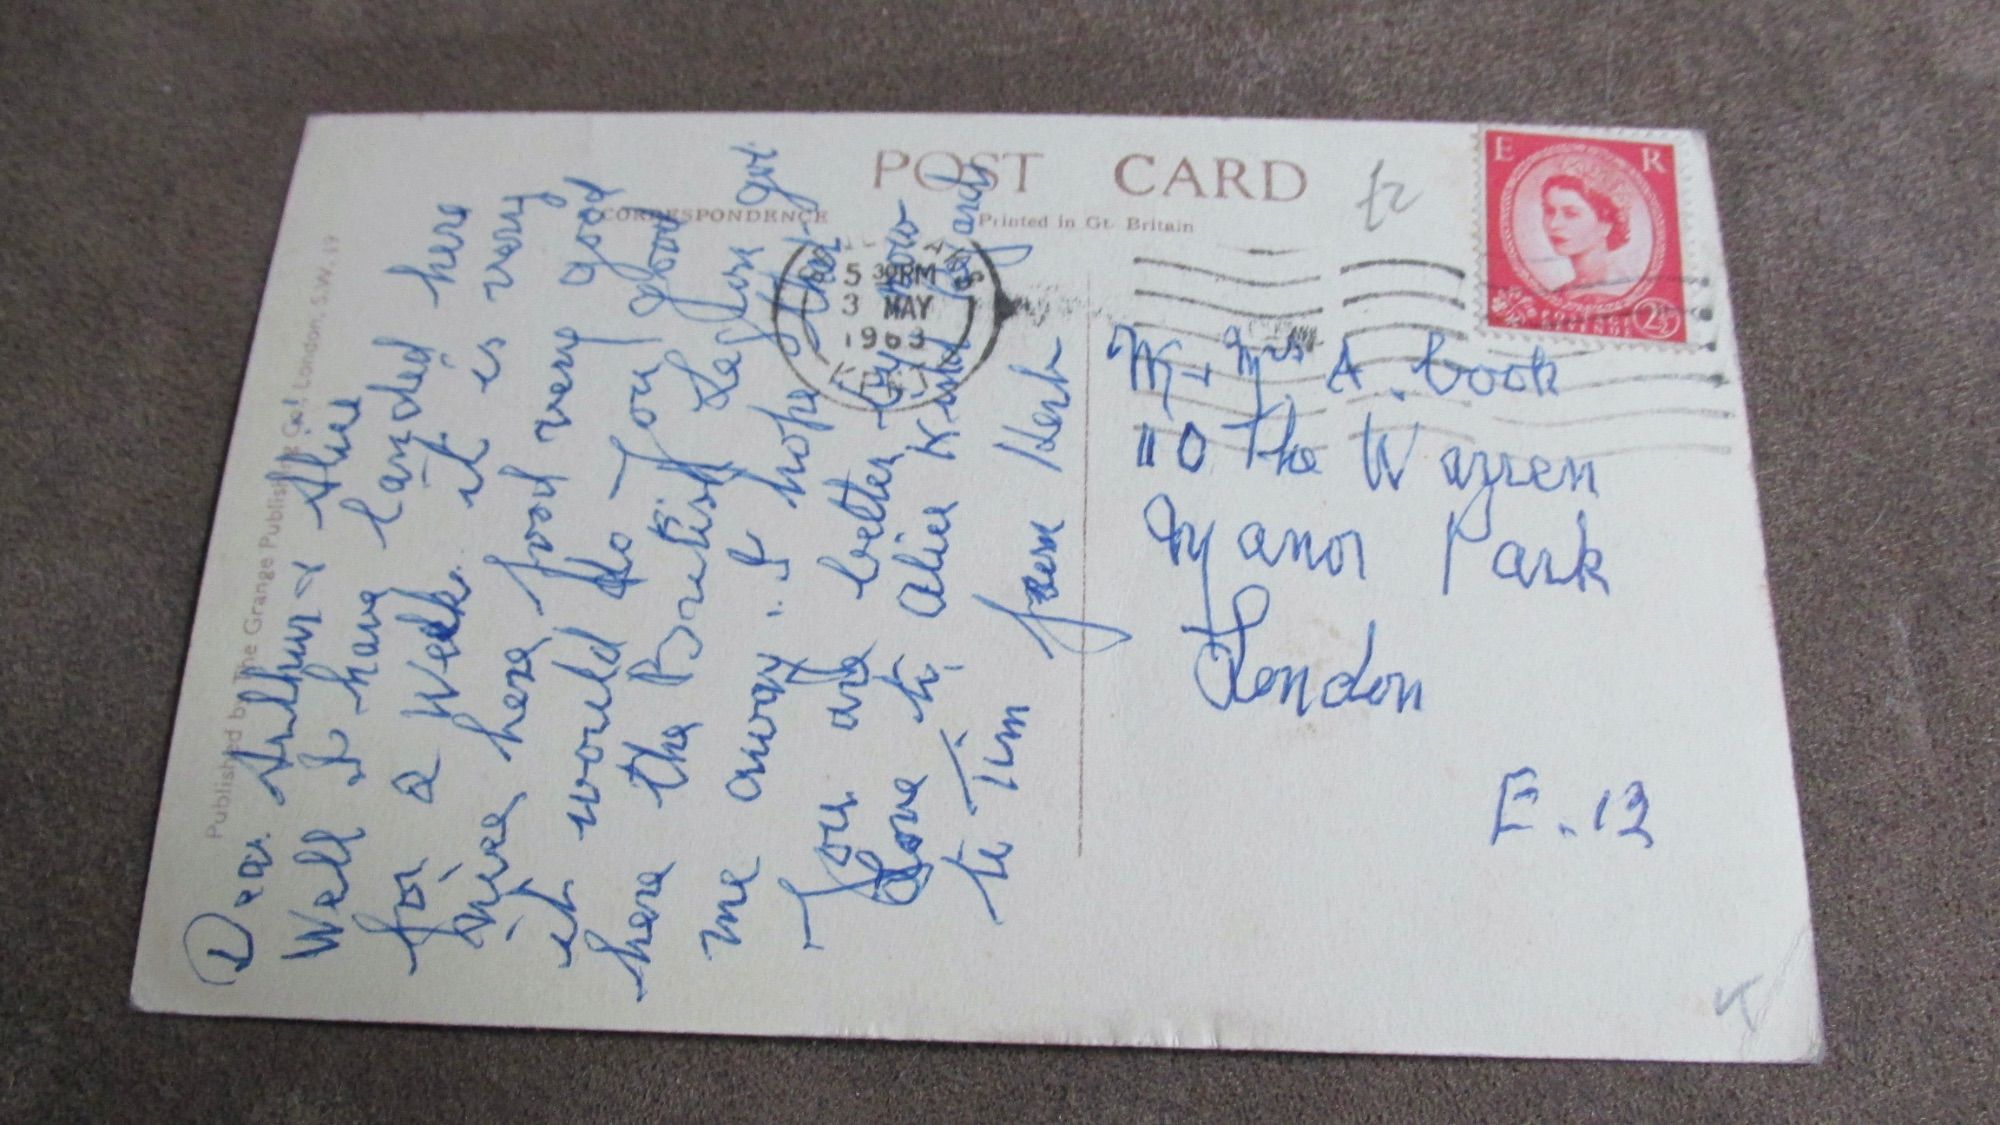 POST CARD
CORRESPONDENCE
Printed in Gt. Britain
£2
E R
POSTAGE
REVENUE
2½
5 30PM
3 MAY
1963
KENT
Published by The Grange Publishing Co., London, S.W.19
Dear Arthur & Alice
Well I have landed here
for a Week. it is very
nice here food very good
it would do you good
here the British Legion got
me away. I hope that
You are better by now
Love to Alice Kind regards
to Tim
from Herb
Mr & Mrs A. Cook
110 The Warren
Manor Park
London
E.12